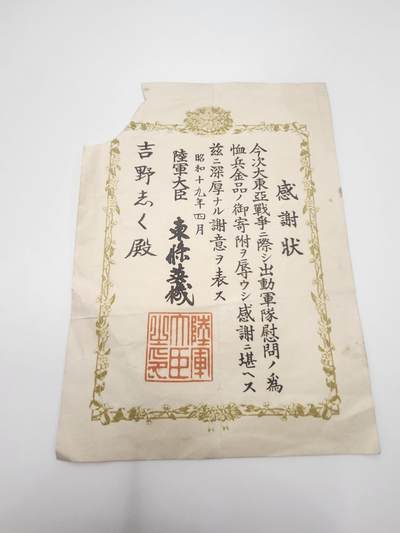 感謝狀
今次大東亞戰爭ニ際シ出動軍隊慰問ノ爲
恤兵金品ノ御寄附ヲ辱ウシ感謝ニ堪ヘス
玆ニ深厚ナル謝意ヲ表ス
昭和十九年四月
陸軍大臣 東條英機
吉野志く殿
陸軍
大臣
之印